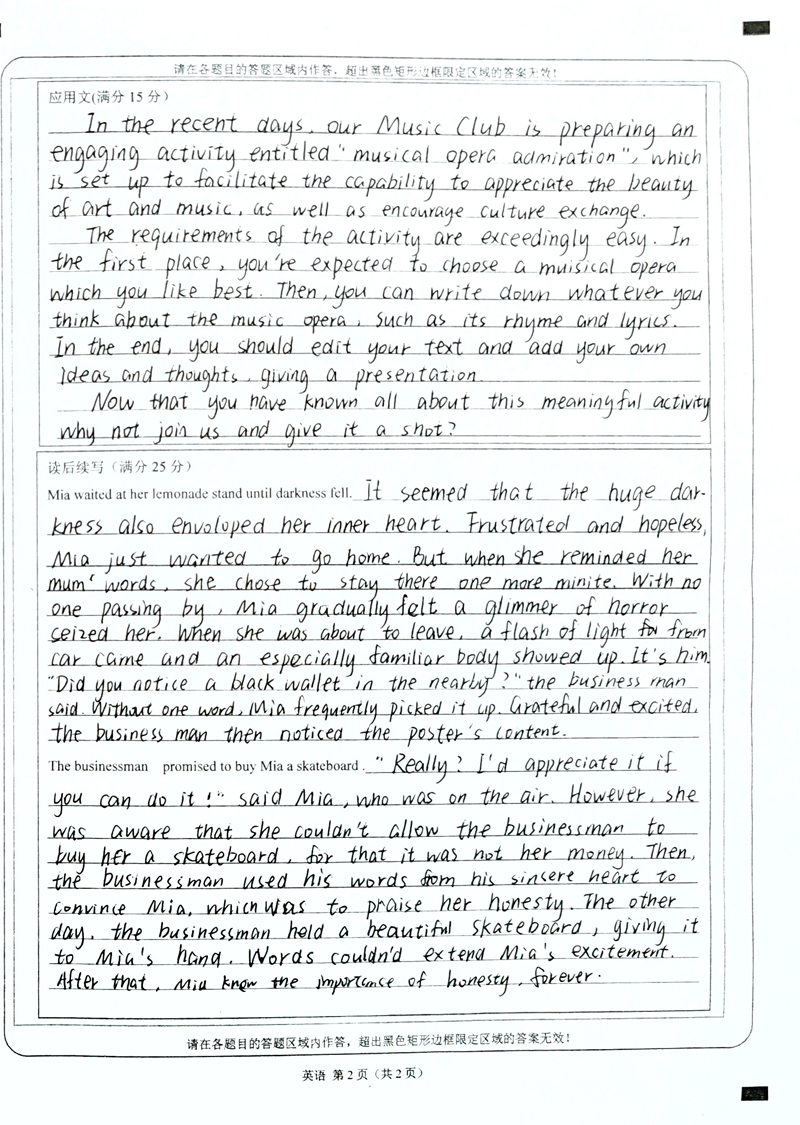 请在各题目的答题区域内作答，超出黑色矩形边框限定区域的答案无效！
应用文(满分 15 分)
In the recent days, our Music Club is preparing an
engaging activity entitled "musical opera admiration", which
is set up to facilitate the capability to appreciate the beauty
of art and music, as well as encourage culture exchange.
The requirements of the activity are exceedingly easy. In
the first place, you're expected to choose a muisical opera
which you like best. Then, you can write down whatever you
think about the music opera, such as its rhyme and lyrics.
In the end, you should edit your text and add your own
ideas and thoughts, giving a presentation.
Now that you have known all about this meaningful activity
why not join us and give it a shot?
读后续写（满分 25 分）
Mia waited at her lemonade stand until darkness fell. It seemed that the huge dar-
kness also envoloped her inner heart. Frustrated and hopeless,
Mia just wanted to go home. But when she reminded her
mum' words, she chose to stay there one more minite. With no
one passing by, Mia gradually felt a glimmer of horror
seized her. When she was about to leave, a flash of light from
car came and an especially familiar body showed up. It's him.
"Did you notice a black wallet in the nearby?" the business man
said. Without one word, Mia frequently picked it up. Grateful and excited,
the business man then noticed the poster's content.
The businessman promised to buy Mia a skateboard. "Really? I'd appreciate it if
you can do it!" said Mia, who was on the air. However, she
was aware that she couldn't allow the businessman to
buy her a skateboard, for that it was not her money. Then,
the businessman used his words from his sincere heart to
convince Mia, which was to praise her honesty. The other
day, the businessman held a beautiful skateboard, giving it
to Mia's hand. Words couldn'd extend Mia's excitement.
After that, Mia knew the importance of honesty, forever.
请在各题目的答题区域内作答，超出黑色矩形边框限定区域的答案无效！
英语 第 2 页（共 2 页）